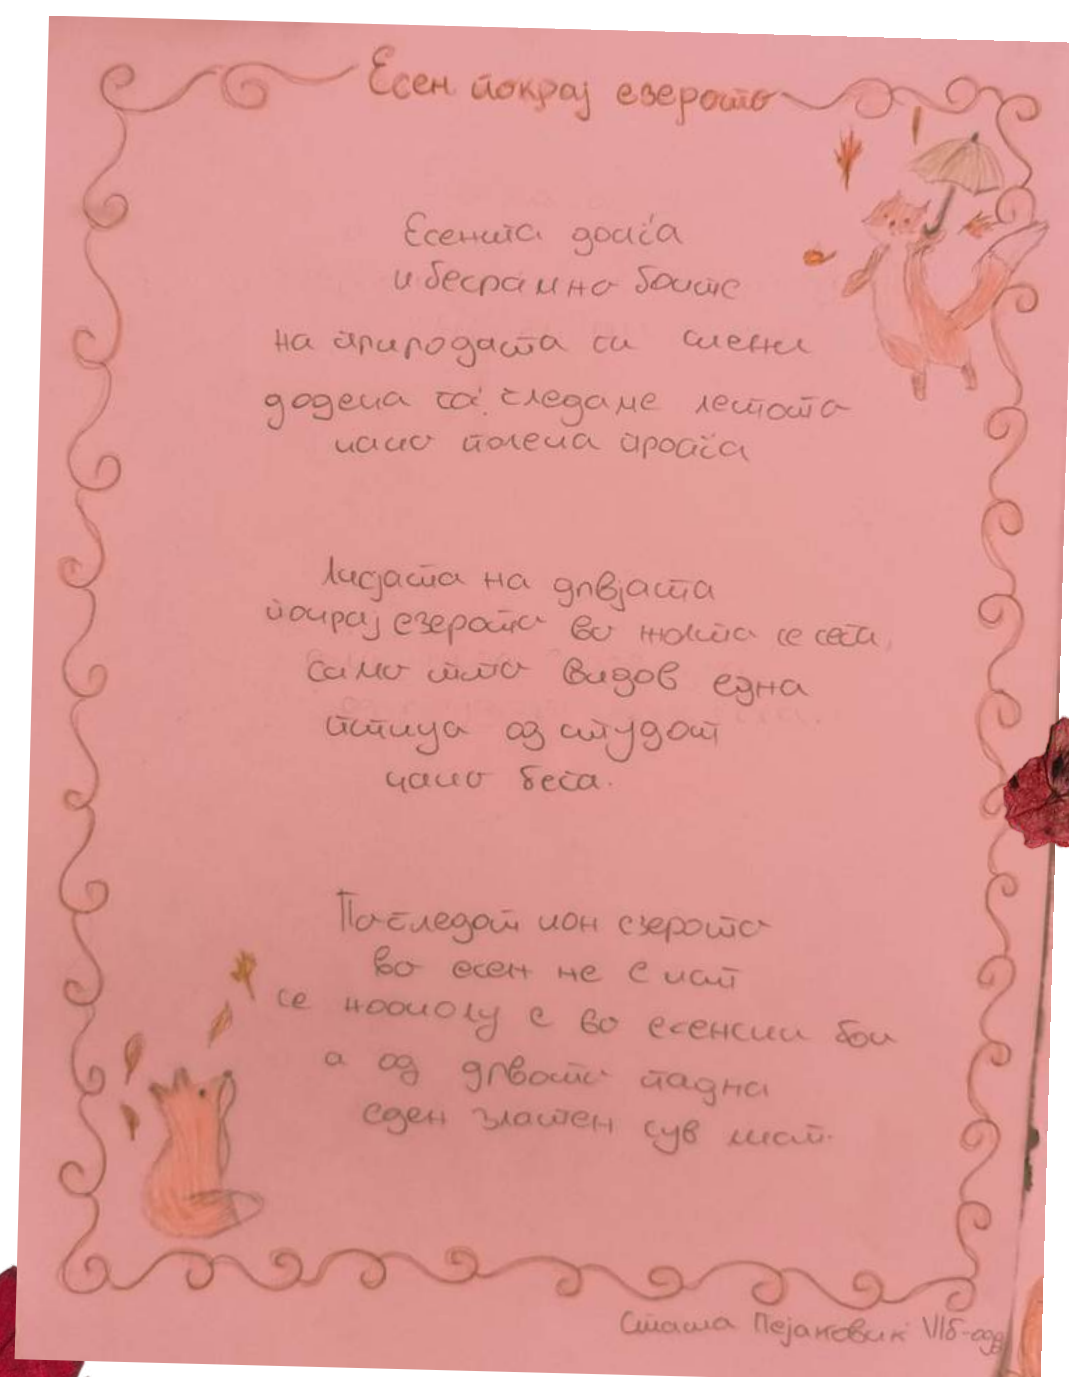 Есен покрај езерото
Есента доаѓа
и бесрамно боите
на природата си смени
додека ја гледаме лентата
како полека проаѓа
Лисјата на дрвјата
покрај езерото во жолта се сега,
само што видов една
птица од студот
како бега.
Погледот кон езерото
во есен не е ист
се наоколу е во есенски бои
а од дрвото падна
еден златен сув лист.
Сташа Пејаковиќ VIб-одд